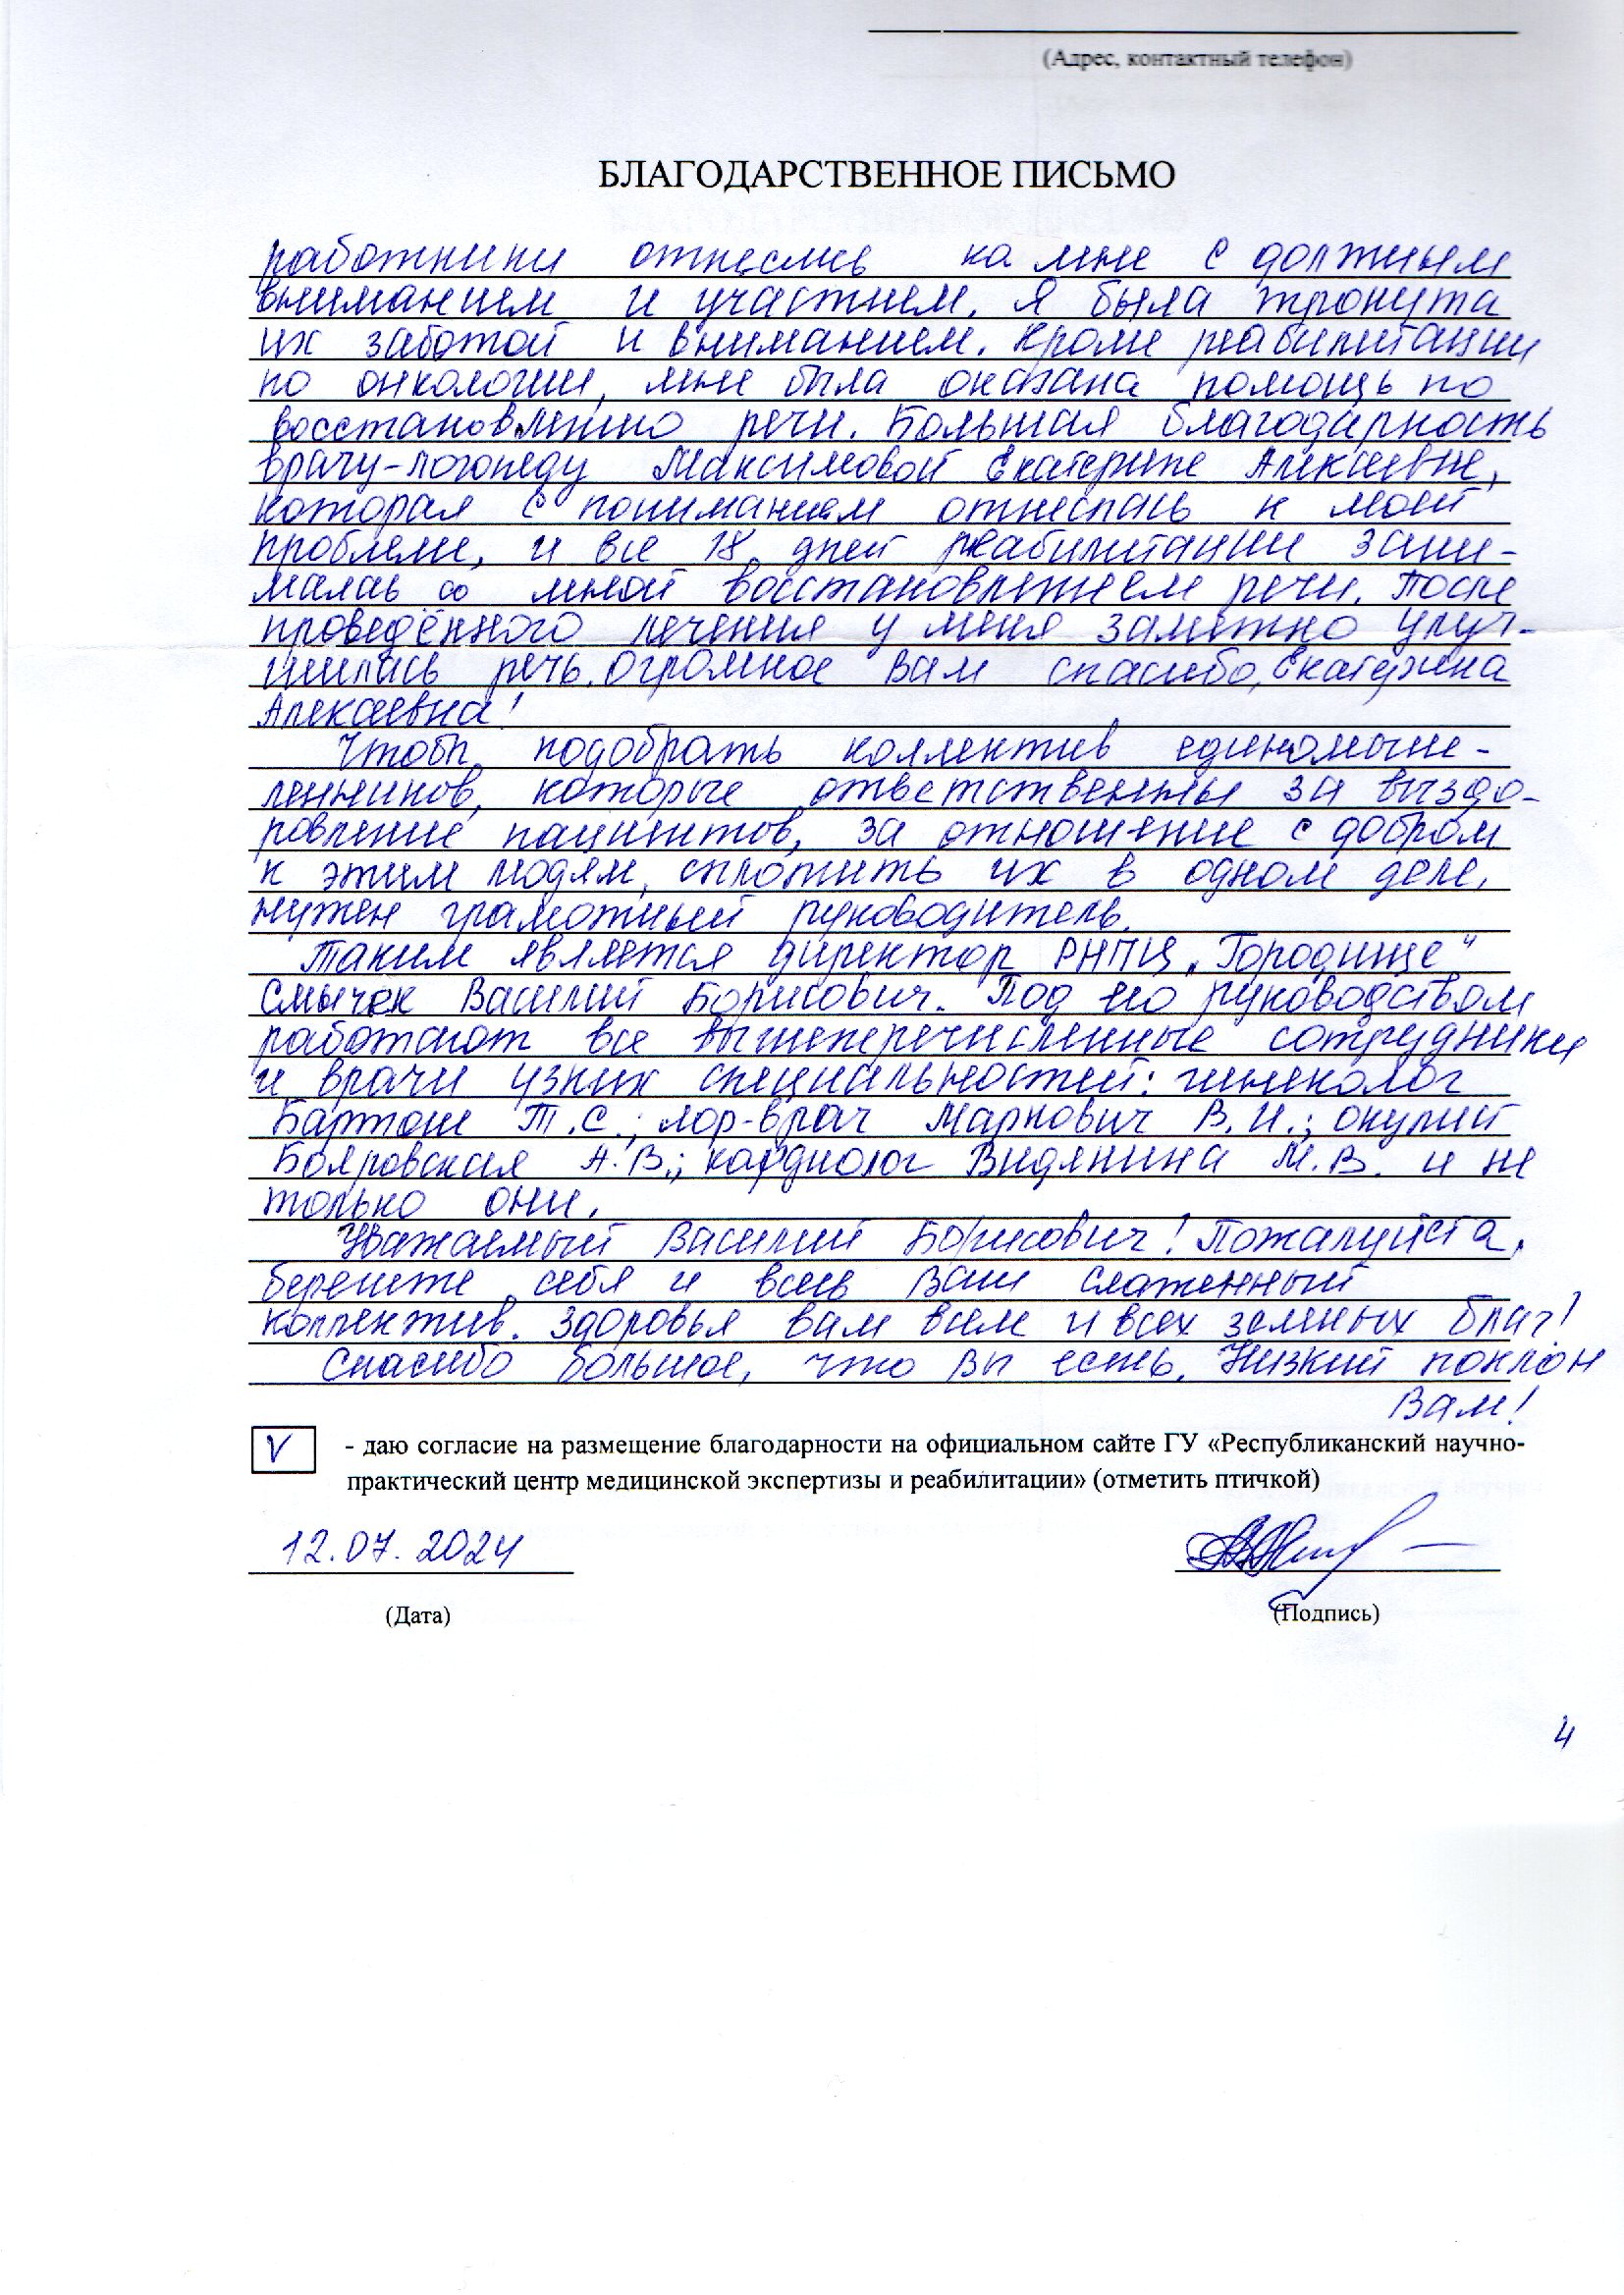 (Адрес, контактный телефон)
БЛАГОДАРСТВЕННОЕ ПИСЬМО
работники отнеслись ко мне с должным
вниманием и участием. Я была тронута
их заботой и вниманием. Кроме реабилитации
по онкологии, мне была оказана помощь по
восстановлению речи. Большая благодарность
врачу-логопеду Максимовой Екатерине Алексеевне,
которая с пониманием отнеслась к моей
проблеме, и все 18 дней реабилитации зани-
малась со мной восстановлением речи. После
проведённого лечения у меня заметно улуч-
шилась речь. Огромное Вам спасибо, Екатерина
Алексеевна!
Чтобы подобрать коллектив единомыш-
ленников, которые ответственны за выздо-
ровление пациентов, за отношение с добром
к этим людям, сплотить их в одном деле,
нужен грамотный руководитель.
Таким является директор РНПЦ „Городище“
Смычек Василий Борисович. Под его руководством
работают все вышеперечисленные сотрудники
и врачи узких специальностей: гинеколог
Бартош Т.С.; лор-врач Маркович В.И.; окулист
Бояровская А.В.; кардиолог Видянина М.В. и не
только они.
Уважаемый Василий Борисович! Пожалуйста,
берегите себя и весь Ваш слаженный
коллектив. Здоровья вам всем и всех земных благ!
Спасибо большое, что Вы есть. Низкий поклон
Вам!
V - даю согласие на размещение благодарности на официальном сайте ГУ «Республиканский научно-
практический центр медицинской экспертизы и реабилитации» (отметить птичкой)
12.07.2024
(Дата) (Подпись)
4